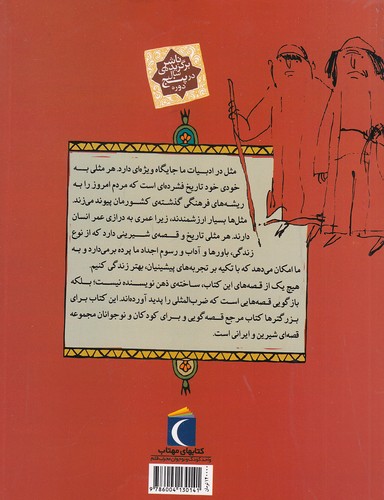 ناشر
برگزیده‌ی
سال
در پنج
دوره
مثل در ادبیات ما جایگاه ویژه‌ای دارد. هر مثلی به
خودی خود تاریخ فشرده‌ای است که مردم امروز را به
ریشه‌های فرهنگی گذشته‌ی کشورمان پیوند می‌زند.
مثل‌ها بسیار ارزشمندند، زیرا عمری به درازی عمر انسان
دارند. هر مثلی تاریخ و قصه‌ی شیرینی دارد که از نوع
زندگی، باورها و آداب و رسوم اجداد ما پرده برمی‌دارد و به
ما امکان می‌دهد که با تکیه بر تجربه‌های پیشینیان، بهتر زندگی کنیم.
هیچ یک از قصه‌های این کتاب، ساخته‌ی ذهن نویسنده نیست؛ بلکه
بازگویی قصه‌هایی است که ضرب‌المثلی را پدید آورده‌اند. این کتاب برای
بزرگترها کتاب مرجع قصه‌گویی و برای کودکان و نوجوانان مجموعه
قصه‌ای شیرین و ایرانی است.
کتابهای مهتاب
9 786004 130141